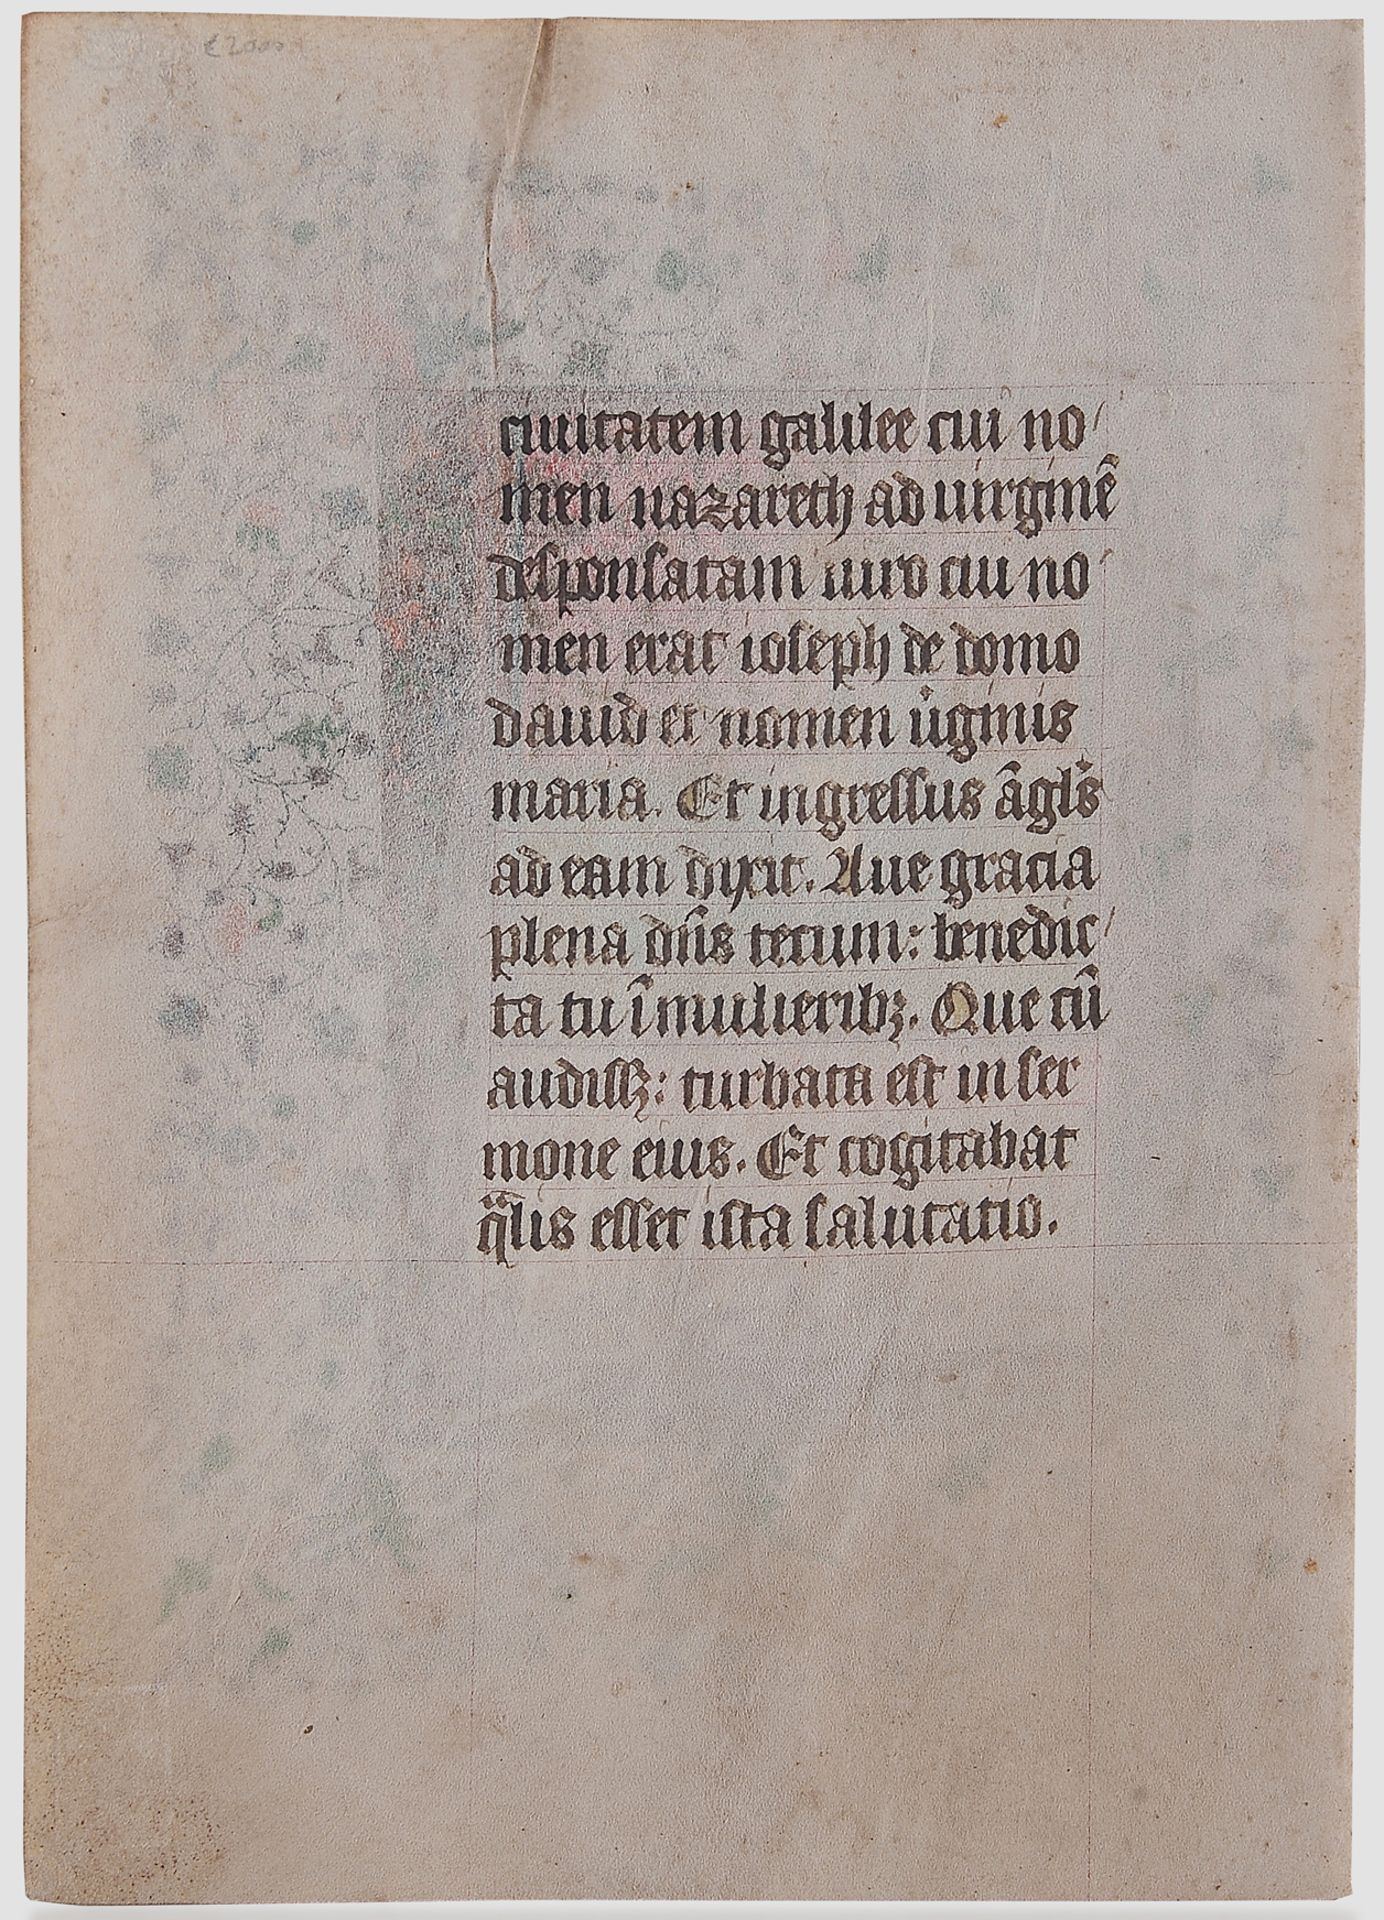 €2000
ciuitatem galilee cui no/
men nazareth ad uirginē
desponsatam uiro cui no/
men erat ioseph de domo
dauid et nomen uͥginis
maria. Et ingressus āgls̄
ad eam dixit. Aue gracia
plena dn̄s tecum: benedic/
ta tu ī mulieribꝫ. Que cū
audissꝫ: turbata est in ser
mone eius. Et cogitabat
qͣlis esset ista salutatio.